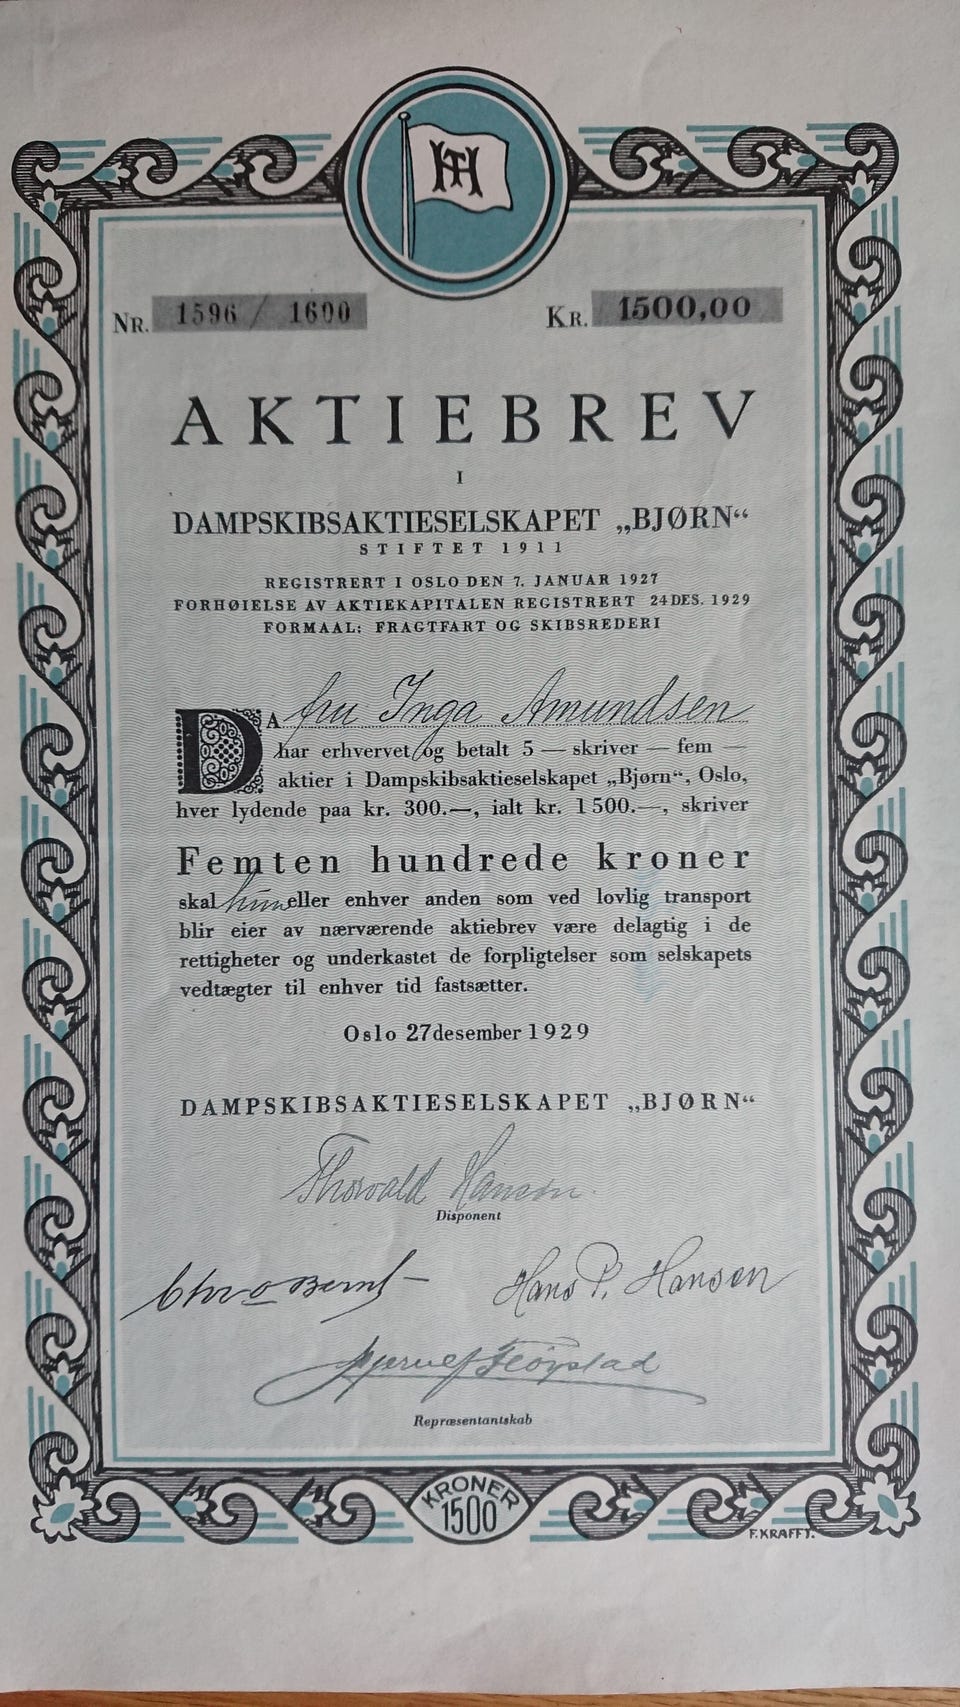 TH
NR. 1596 / 1600 KR. 1500,00
AKTIEBREV
I
DAMPSKIBSAKTIESELSKAPET „BJØRN“
STIFTET 1911
REGISTRERT I OSLO DEN 7. JANUAR 1927
FORHØIELSE AV AKTIEKAPITALEN REGISTRERT 24 DES. 1929
FORMAAL: FRAGTFART OG SKIBSREDERI
DA fru Inga Amundsen
har erhvervet og betalt 5 — skriver — fem —
aktier i Dampskibsaktieselskapet „Bjørn“, Oslo,
hver lydende paa kr. 300.—, ialt kr. 1500.—, skriver
Femten hundrede kroner
skal hun eller enhver anden som ved lovlig transport
blir eier av nærværende aktiebrev være delagtig i de
rettigheter og underkastet de forpligtelser som selskapets
vedtægter til enhver tid fastsætter.
Oslo 27 desember 1929
DAMPSKIBSAKTIESELSKAPET „BJØRN“
Thorvald Hansen.
Disponent
Hans P. Hansen
Fløystad
Repræsentantskab
KRONER
1500
F. KRAFFT.